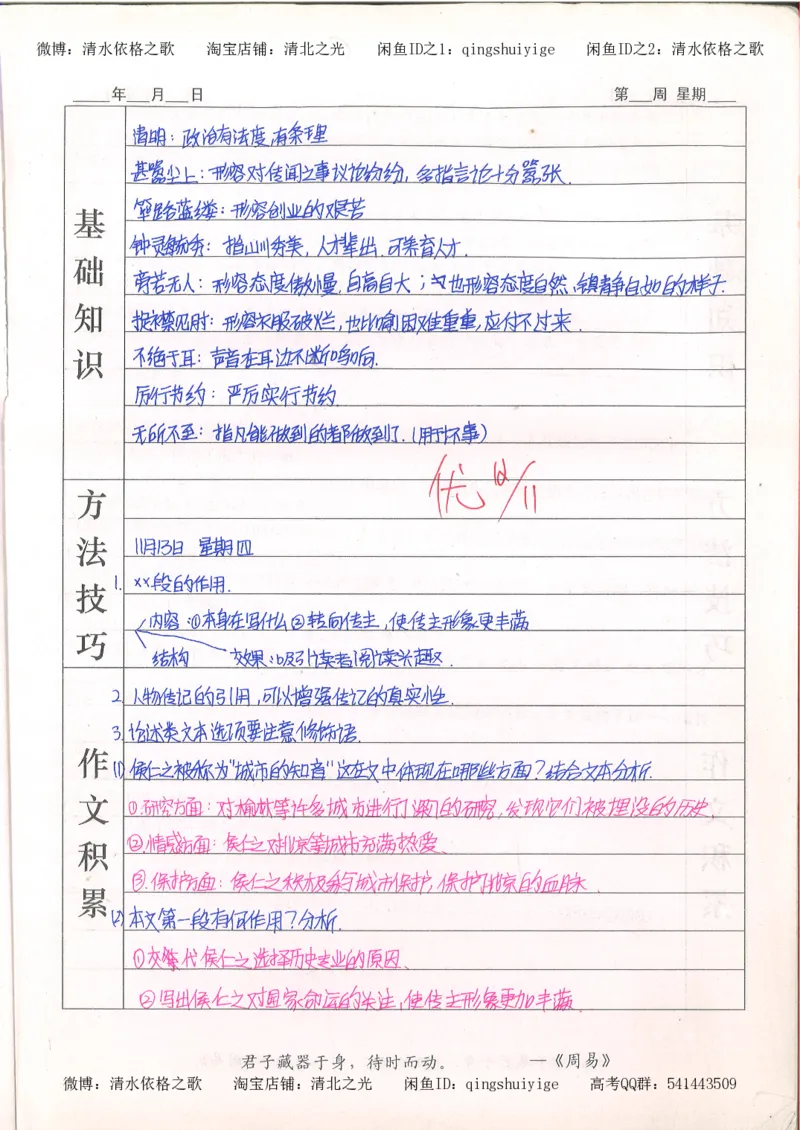 微博：清水依格之歌 淘宝店铺：清北之光 闲鱼ID之1：qingshuiyige 闲鱼ID之2：清水依格之歌
年 月 日 第 周 星期
基础知识
清明：政治有法度,有条理
甚嚣尘上：形容对传闻之事议论纷纷，多指言论十分嚣张.
筚路蓝缕：形容创业的艰苦
钟灵毓秀：指山川秀美，人才辈出.可养育人才.
旁若无人：形容态度傲慢,自高自大；也形容态度自然、镇静自如的样子.
捉襟见肘：形容衣服破烂，也比喻困难重重，应付不过来.
不绝于耳：声音在耳边不断鸣响.
厉行节约：严厉实行节约
无所不至：指凡能做到的都做到了.(用于坏事)
优 12/11
方法技巧
11月13日 星期四
1. ××段的作用.
内容：①本身在写什么②转向传主，使传主形象更丰满
结构 效果：吸引读者阅读兴趣.
2. 人物传记的引用，可以增强传记的真实性.
作文积累
3. 论述类文本选项要注意修饰语.
(1) 侯仁之被称为"城市的知音"这在文中体现在哪些方面？结合文本分析.
①研究方面：对榆林等许多城市进行了深入的研究，发现它们被埋没的历史.
②.情感方面：侯仁之对北京等城市充满热爱、
③.保护方面：侯仁之积极参与城市保护，保护了北京的血脉.
(2) 本文第一段有何作用？分析.
①交代侯仁之选择历史专业的原因、
②写出侯仁之对国家命运的关注，使传主形象更加丰满.
君子藏器于身，待时而动。 —《周易》
微博：清水依格之歌 淘宝店铺：清北之光 闲鱼ID：qingshuiyige 高考QQ群：541443509